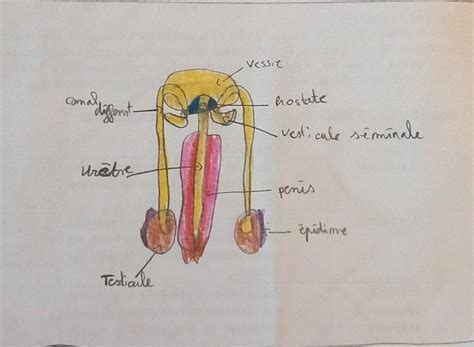 Vessie
canal
déférent
Prostate
vesticule séminale
Urètre
penis
épidime
Testicule